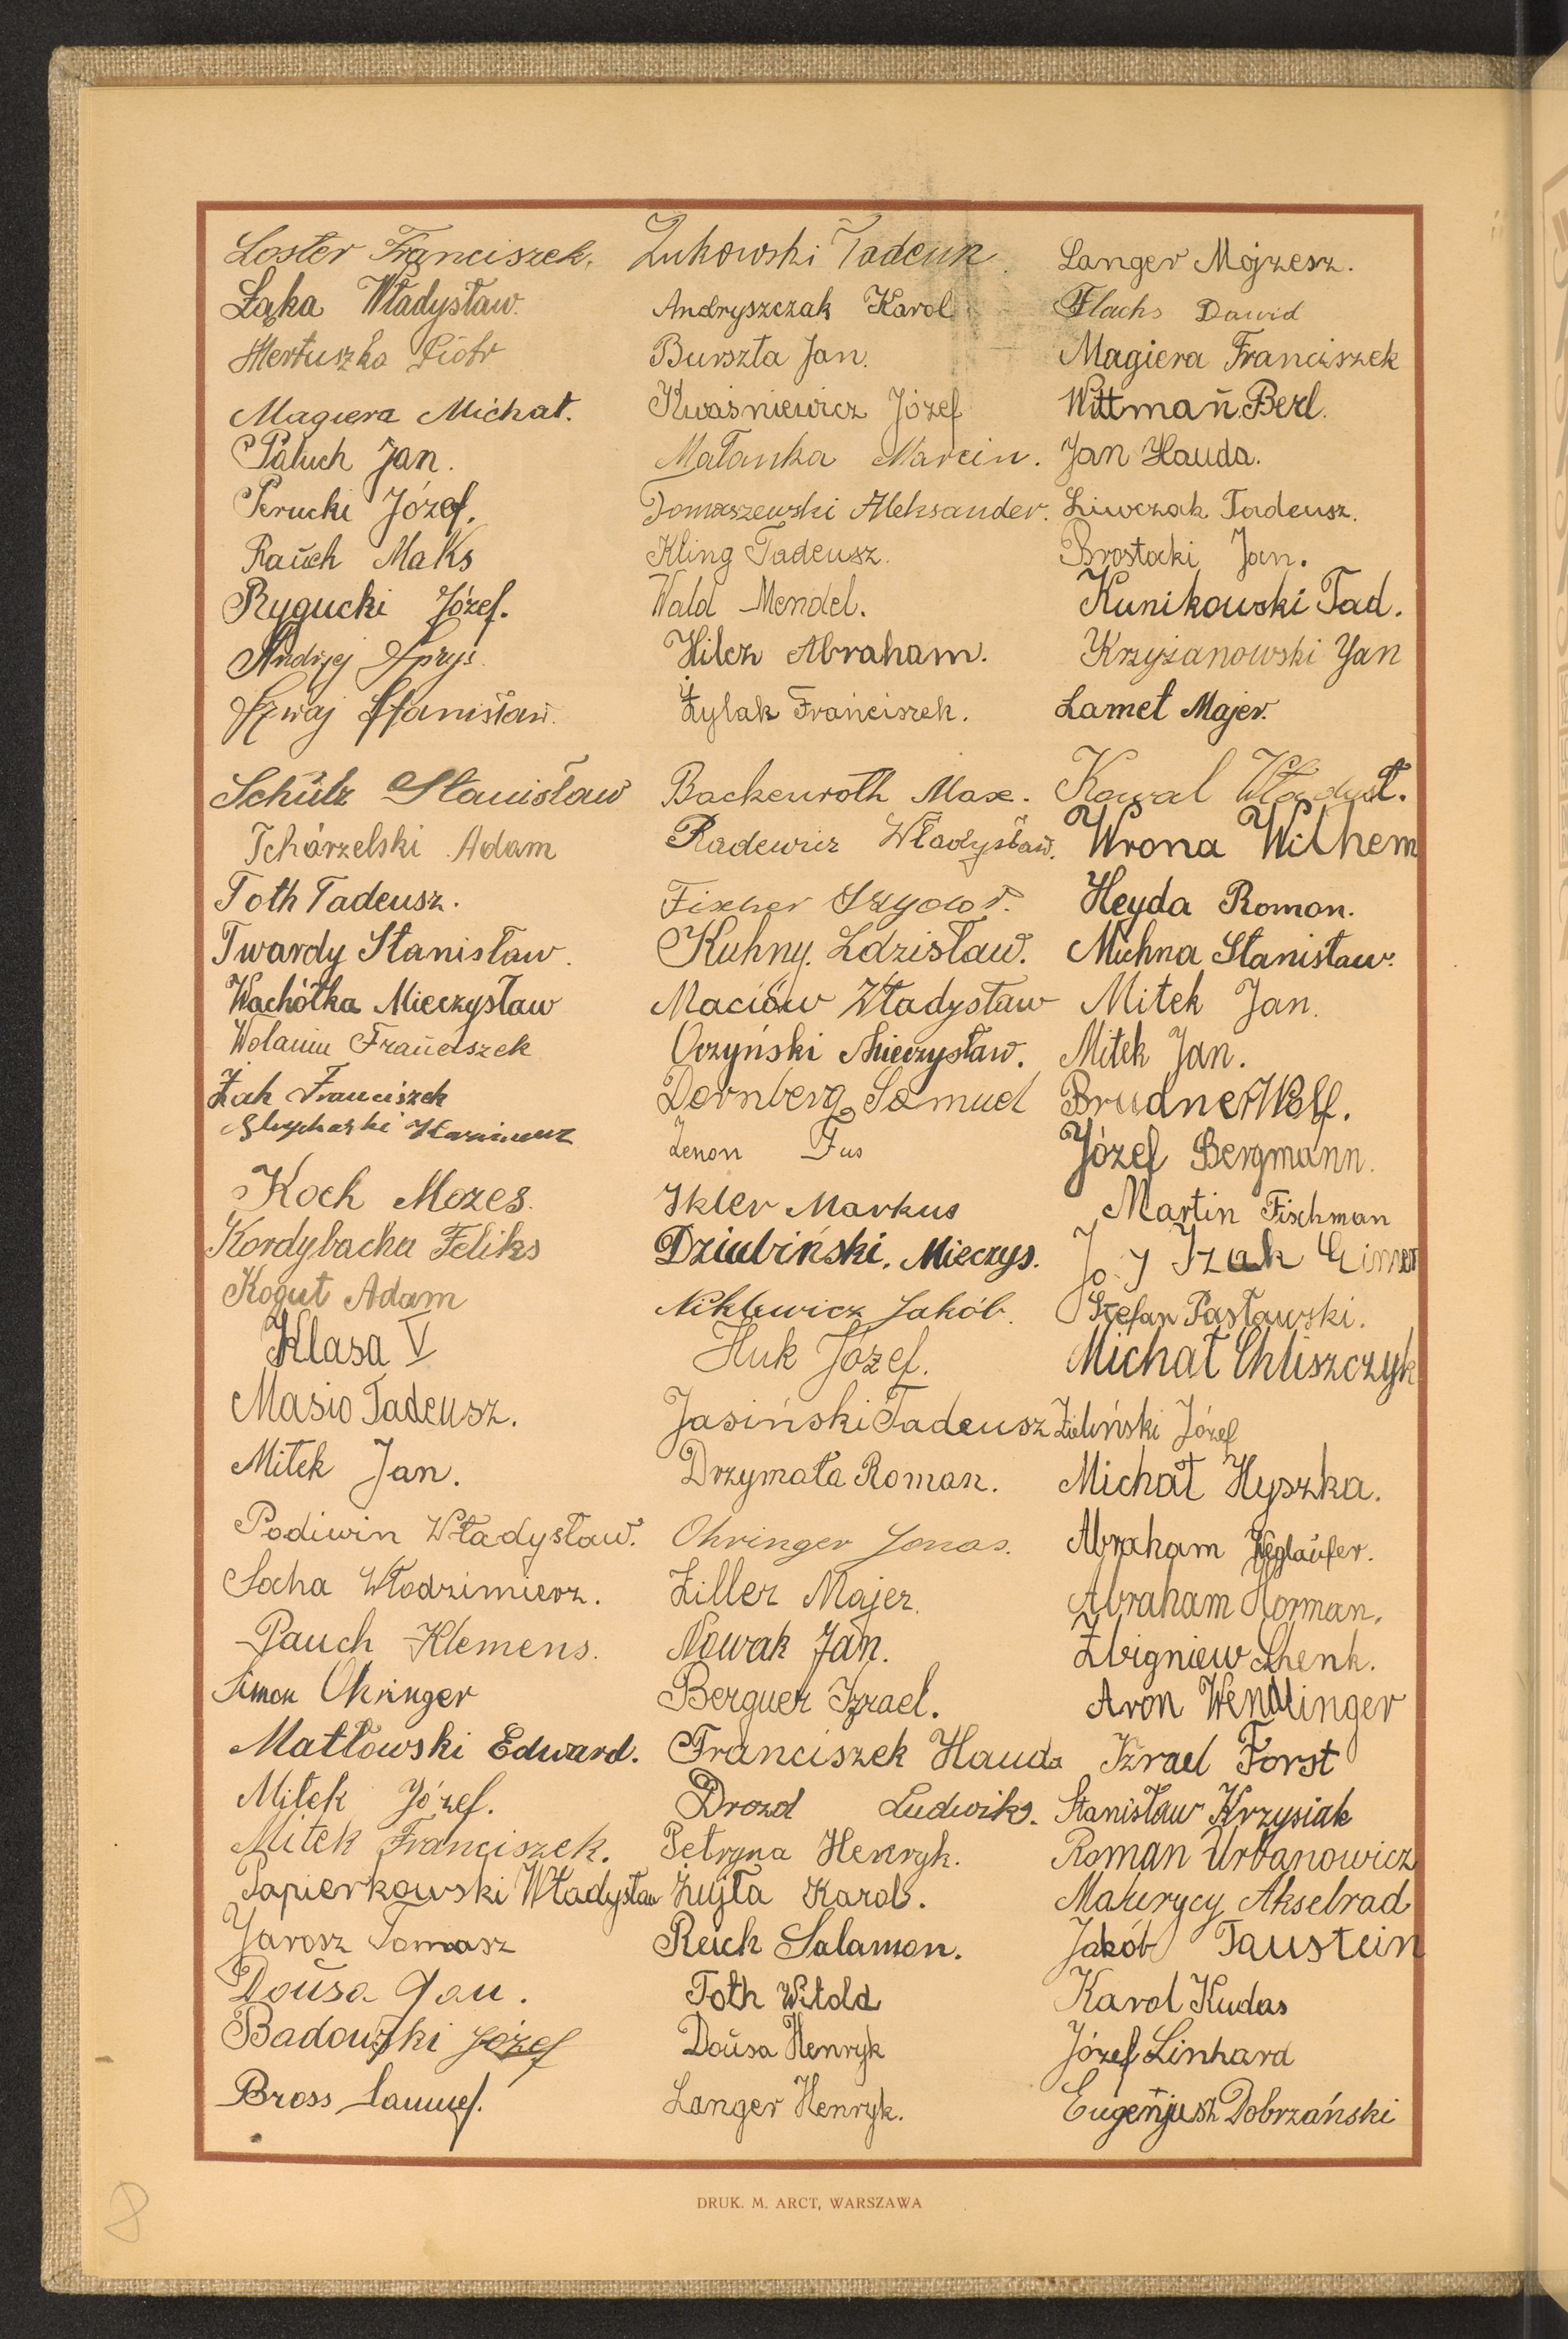 Loster Franciszek.
Łąka Władysław.
Mertuszka Piotr
Magiera Michał.
Paluch Jan.
Perucki Józef.
Rauch Maks
Rygucki Józef.
Andrzej Spryś.
Szwaj Stanisław.
Schulz Stanisław
Tchórzelski Adam
Toth Tadeusz.
Twardy Stanisław.
Wachółka Mieczysław
Wolanin Franciszek
Żak Franciszek
Kazimierz
Koch Mozes.
Kordybacha Feliks
Kogut Adam
Klasa V
Masio Tadeusz.
Mitek Jan.
Podiwin Władysław.
Socha Włodzimierz.
Pauch Klemens.
Simon Ohringer
Matłowski Edward.
Mitek Józef.
Mitek Franciszek.
Papierkowski Władysław
Jarosz Tomasz
Dousa Jan.
Badowski Józef
Bross Samuel.
Żukowski Tadeusz.
Andryszczak Karol
Burszta Jan.
Kwaśniewicz Józef
Małanka Marcin.
Tomaszewski Aleksander.
Kling Tadeusz.
Wald Mendel.
Hilcz Abraham.
Żylak Franciszek.
Backenroth Max.
Radewicz Władysław.
Fischer
Kuhny Zdzisław.
Maciów Władysław
Oczyński Mieczysław.
Dornberg Samuel
Zenon Fus
Ikler Markus
Dziubiński. Mieczys.
Niklewicz Jakób.
Huk Józef.
Jasiński Tadeusz
Drzymała Roman.
Ohringer Jonas.
Ziller Majer.
Nowak Jan.
Berguer Izrael.
Franciszek Hauda
Drozd Ludwik.
Petryna Henryk.
Żujta Karol.
Reich Salamon.
Toth Witold
Dousa Henryk
Langer Henryk.
Langer Mojżesz.
Flachs Dawid
Magiera Franciszek
Wittmañ Berl.
Jan Hauda.
Liwczak Tadeusz.
Brostacki Jan.
Kunikowski Tad.
Krzyżanowski Jan
Lamet Majer.
Kowal Władysł.
Wrona Wilhem
Heyda Roman.
Michna Stanisław.
Mitek Jan.
Mitek Jan.
Brudner Wolf.
Józef Bergmann.
Martin Fischman
Izak
Stefan Pasławski.
Michał Chliszczyk
Zieliński Józef
Michał Hyszka.
Abraham Weglaufer.
Abraham Horman.
Zbigniew Shenk.
Aron Wendlinger
Izrael Forst
Stanisław Krzysiak
Roman Urbanowicz
Maurycy Akselrad
Jakób Taustein
Karol Kudas
Józef Linhard
Eugenjusz Dobrzański
DRUK. M. ARCT, WARSZAWA
8